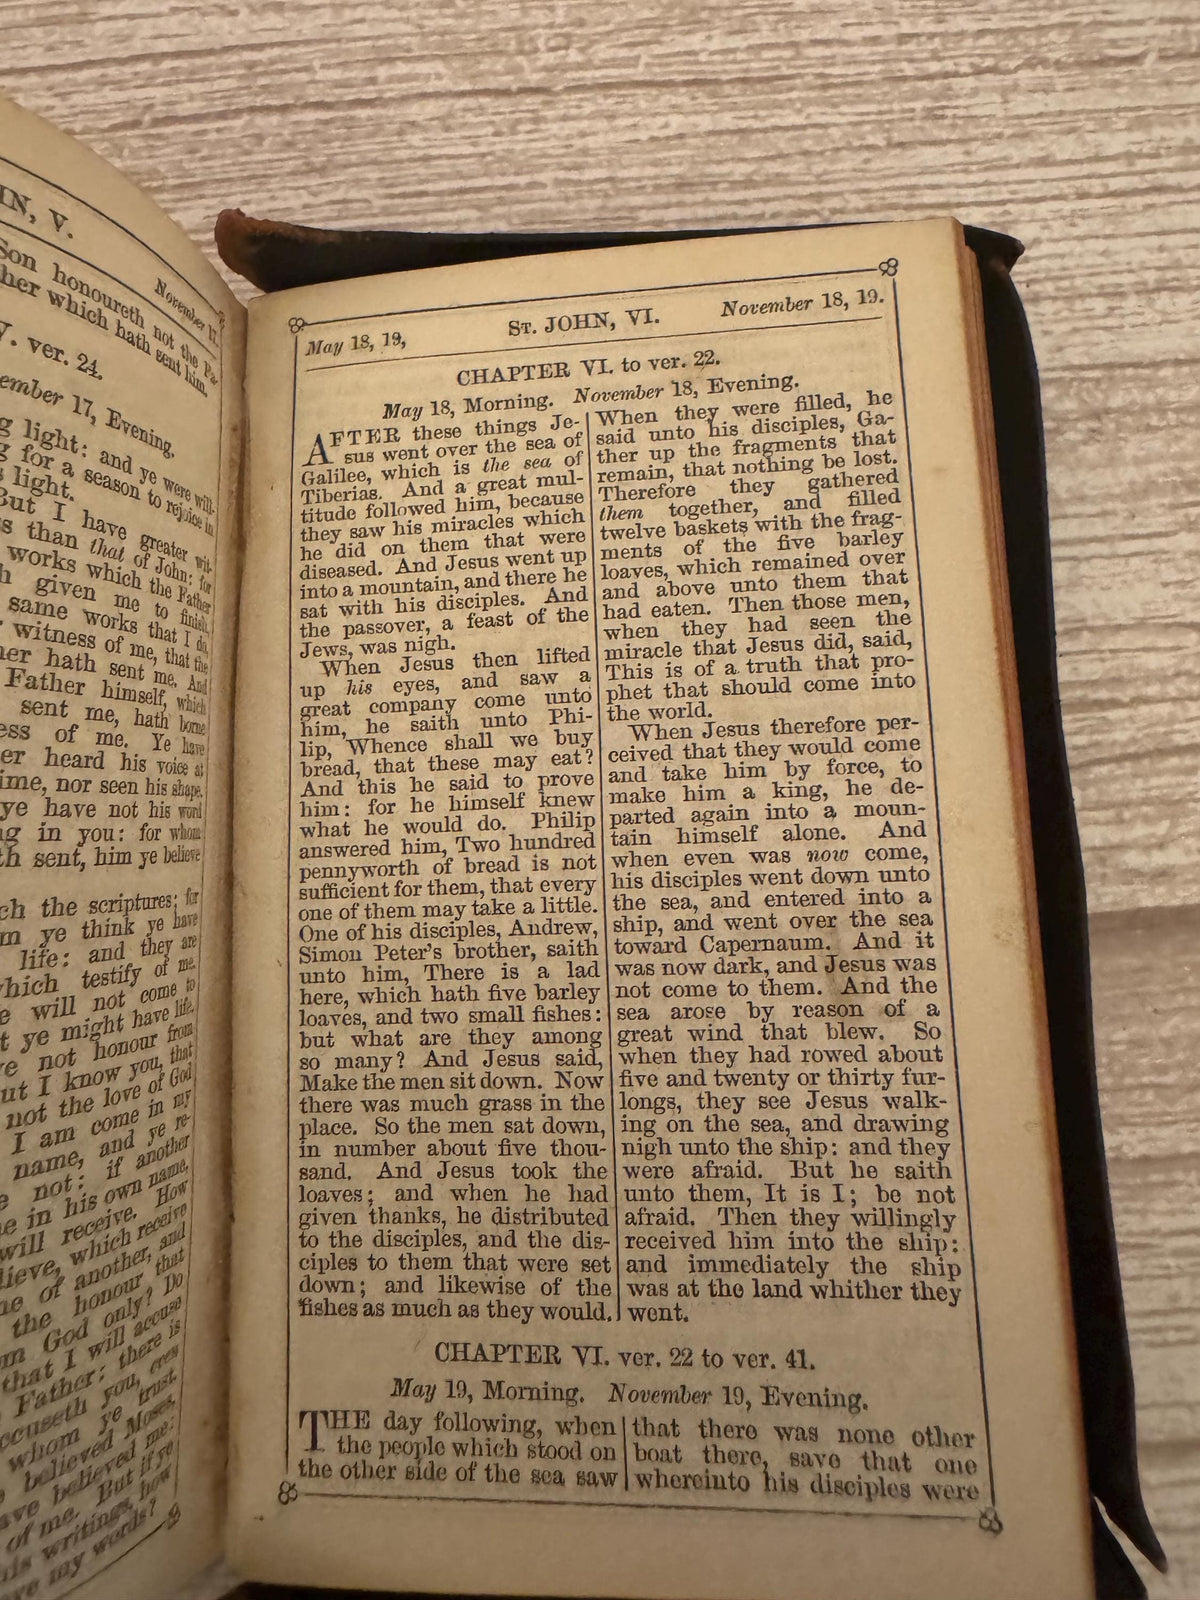 IN, V.
November 17.
Son honoureth not the Fa-
her which hath sent him.
V. ver. 24.
ember 17, Evening.
g light: and ye were will-
g for a season to rejoice in
s light.
But I have greater wit-
s than that of John: for
works which the Father
h given me to finish,
same works that I do,
witness of me, that the
her hath sent me. And
Father himself, which
sent me, hath borne
ess of me. Ye have
er heard his voice at
ime, nor seen his shape.
ye have not his word
ng in you: for whom
th sent, him ye believe
ch the scriptures; for
m ye think ye have
life: and they are
which testify of me.
e will not come to
t ye might have life.
ve not honour from
ut I know you, that
not the love of God
I am come in my
name, and ye re-
e not: if another
me in his own name,
will receive. How
lieve, which receive
ne of another, and
the honour that
om God only? Do
that I will accuse
Father: there is
ccuseth you, even
whom ye trust.
believed Moses,
ave believed me:
of me. But if ye
his writings, how
eve my words?
May 18, 19,
ST. JOHN, VI.
November 18, 19.
CHAPTER VI. to ver. 22.
May 18, Morning. November 18, Evening.
AFTER these things Je-
sus went over the sea of
Galilee, which is the sea of
Tiberias. And a great mul-
titude followed him, because
they saw his miracles which
he did on them that were
diseased. And Jesus went up
into a mountain, and there he
sat with his disciples. And
the passover, a feast of the
Jews, was nigh.
When Jesus then lifted
up his eyes, and saw a
great company come unto
him, he saith unto Phi-
lip, Whence shall we buy
bread, that these may eat?
And this he said to prove
him: for he himself knew
what he would do. Philip
answered him, Two hundred
pennyworth of bread is not
sufficient for them, that every
one of them may take a little.
One of his disciples, Andrew,
Simon Peter's brother, saith
unto him, There is a lad
here, which hath five barley
loaves, and two small fishes:
but what are they among
so many? And Jesus said,
Make the men sit down. Now
there was much grass in the
place. So the men sat down,
in number about five thou-
sand. And Jesus took the
loaves; and when he had
given thanks, he distributed
to the disciples, and the dis-
ciples to them that were set
down; and likewise of the
fishes as much as they would.
When they were filled, he
said unto his disciples, Ga-
ther up the fragments that
remain, that nothing be lost.
Therefore they gathered
them together, and filled
twelve baskets with the frag-
ments of the five barley
loaves, which remained over
and above unto them that
had eaten. Then those men,
when they had seen the
miracle that Jesus did, said,
This is of a truth that pro-
phet that should come into
the world.
When Jesus therefore per-
ceived that they would come
and take him by force, to
make him a king, he de-
parted again into a moun-
tain himself alone. And
when even was now come,
his disciples went down unto
the sea, and entered into a
ship, and went over the sea
toward Capernaum. And it
was now dark, and Jesus was
not come to them. And the
sea arose by reason of a
great wind that blew. So
when they had rowed about
five and twenty or thirty fur-
longs, they see Jesus walk-
ing on the sea, and drawing
nigh unto the ship: and they
were afraid. But he saith
unto them, It is I; be not
afraid. Then they willingly
received him into the ship:
and immediately the ship
was at the land whither they
went.
CHAPTER VI. ver. 22 to ver. 41.
May 19, Morning. November 19, Evening.
THE day following, when
the people which stood on
the other side of the sea saw
that there was none other
boat there, save that one
whereinto his disciples were